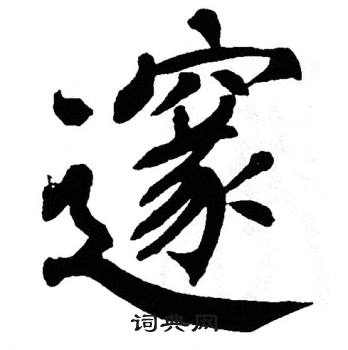 邃
词典网